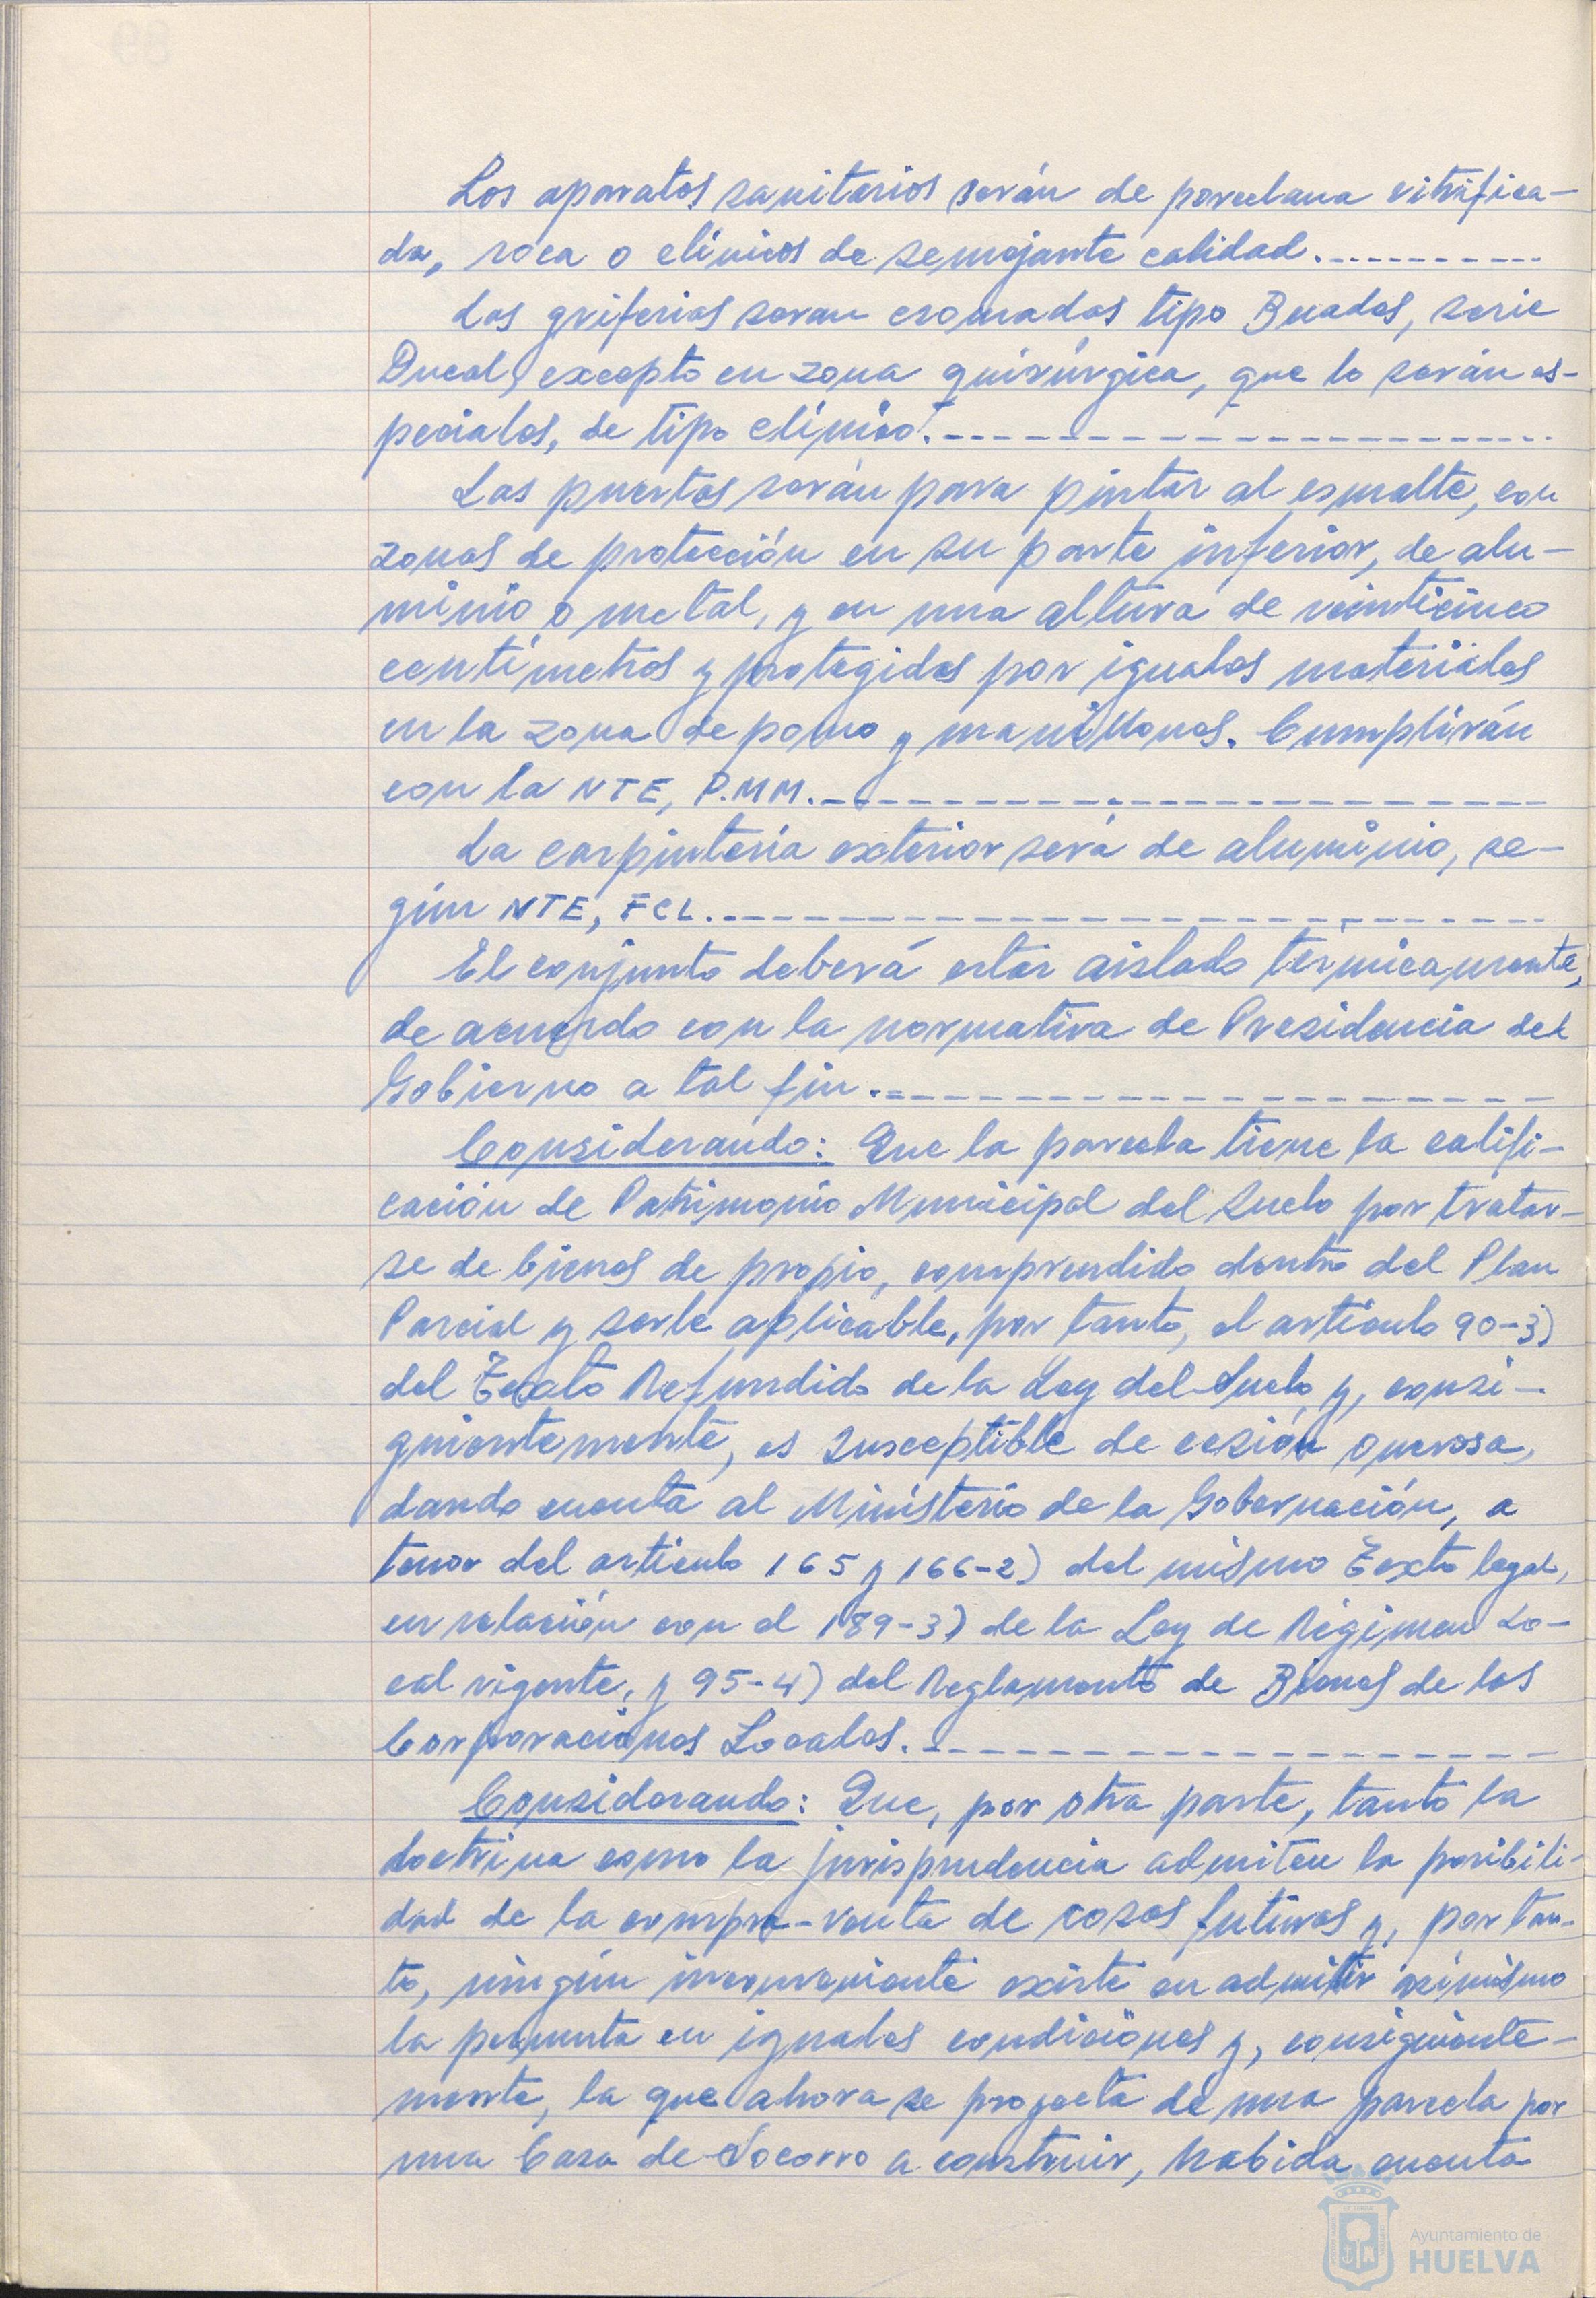 Los aparatos sanitarios serán de porcelana vitrifica-
da, roca o clínicos de semejante calidad.
Las griferias seran cromadas tipo Buades, serie
Ducal, excepto en zona quirúrgica, que lo serán es-
peciales, de tipo clínico.
Las puertas serán para pintar al esmalte, con
zonas de protección en su parte inferior, de alu-
minio o metal, y en una altura de veinticinco
centímetros y protegidas por iguales materiales
en la zona de pomo y manillones. Cumplirán
con la NTE, P.MM.
La carpintería exterior será de aluminio, se-
gún NTE, FCL.
El conjunto deberá estar aislado térmicamente,
de acuerdo con la normativa de Presidencia del
Gobierno a tal fin.
Considerando: Que la parcela tiene la califi-
cación de Patrimonio Municipal del Suelo por tratar-
se de bienes de propio, comprendido dentro del Plan
Parcial y serle aplicable, por tanto, el artículo 90-3)
del Texto Refundido de la Ley del Suelo y, consi-
guientemente, es susceptible de cesión onerosa,
dando cuenta al Ministerio de la Gobernación, a
tenor del artículo 165 y 166-2) del mismo Texto legal,
en relación con el 189-3) de la Ley de Régimen Lo-
cal vigente, y 95-4) del Reglamento de Bienes de las
Corporaciones Locales.
Considerando: Que, por otra parte, tanto la
doctrina como la jurisprudencia admiten la posibili-
dad de la compra-venta de cosas futuras y, por tan-
to, ningún inconveniente existe en admitir asimismo
la permuta en iguales condiciones y, consiguiente-
mente, la que ahora se proyecta de una parcela por
una Casa de Socorro a construir, habida cuenta
Ayuntamiento de
HUELVA